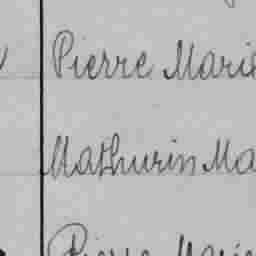 Pierre Marie
Mathurin Ma
Pierre Marie